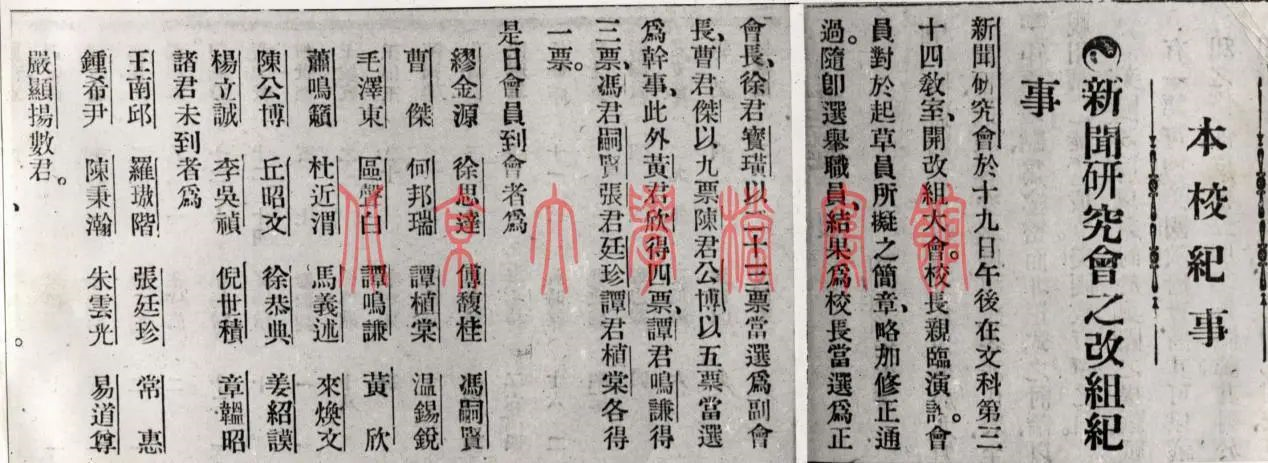 本校紀事
新聞研究會之改組紀
事
新聞研究會於十九日午後在文科第三
十四敎室、開改組大會。校長親臨演說。會
員對於起草員所擬之簡章、略加修正通
過。隨卽選舉職員、結果爲校長當選爲正
會長、徐君寳璜以二十三票當選爲副會
長、曹君傑以九票陳君公博以五票當選
爲幹事、此外黃君欣得四票、譚君鳴謙得
三票、馮君嗣賢張君廷珍譚君植棠各得
一票。
是日會員到會者爲
繆金源 徐思達 傅馥桂 馮嗣賢
曹傑 何邦瑞 譚植棠 温錫銳
毛澤東 區聲白 譚鳴謙 黃欣
蕭鳴籟 杜近渭 馬義述 來煥文
陳公博 丘昭文 徐恭典 姜紹謨
楊立誠 李吳禎 倪世積 章韞昭
諸君未到者爲
王南邱 羅璈階 張廷珍 常惠
鍾希尹 陳秉瀚 朱雲光 易道尊
嚴顯揚數君。
北京大學檔案館